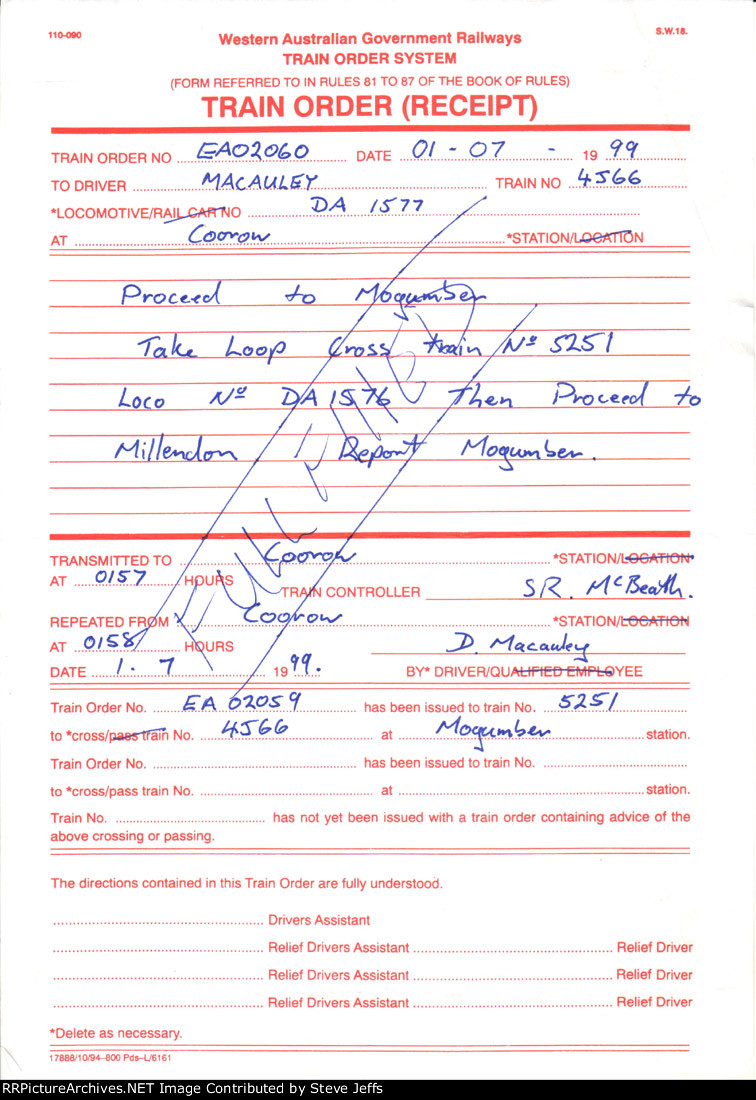 110-090
S.W.18.
Western Australian Government Railways
TRAIN ORDER SYSTEM
(FORM REFERRED TO IN RULES 81 TO 87 OF THE BOOK OF RULES)
TRAIN ORDER (RECEIPT)
TRAIN ORDER NO EA02060 DATE 01 - 07 - 19 99
TO DRIVER MACAULEY TRAIN NO 4566
*LOCOMOTIVE/RAIL CAR NO DA 1577
AT Coorow *STATION/LOCATION
Proceed to Mogumber
Take Loop Cross train Nº 5251
Loco Nº DA 1576 Then Proceed to
Millendon Report Mogumber.
FULFILLED
TRANSMITTED TO Coorow *STATION/LOCATION
AT 0157 HOURS TRAIN CONTROLLER S.R. McBeath.
REPEATED FROM Coorow *STATION/LOCATION
AT 0158 HOURS D. Macauley
DATE 1. 7 19 99. BY* DRIVER/QUALIFIED EMPLOYEE
Train Order No. EA 02059 has been issued to train No. 5251
to *cross/pass train No. 4566 at Mogumber station.
Train Order No. has been issued to train No.
to *cross/pass train No. at station.
Train No. has not yet been issued with a train order containing advice of the
above crossing or passing.
The directions contained in this Train Order are fully understood.
Drivers Assistant
Relief Drivers Assistant Relief Driver
Relief Drivers Assistant Relief Driver
Relief Drivers Assistant Relief Driver
*Delete as necessary.
17888/10/94-800 Pds-L/6161
RRPictureArchives.NET Image Contributed by Steve Jeffs